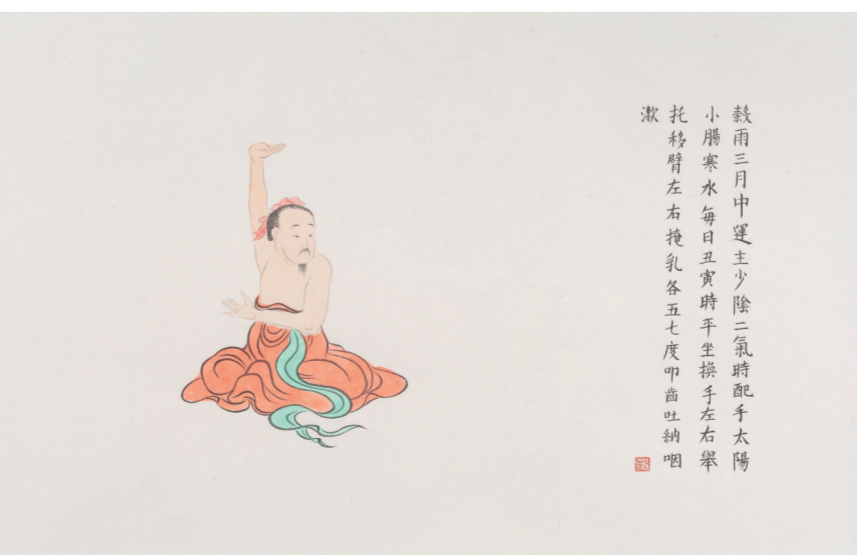 穀雨三月中運主少陰二氣時配手太陽
小腸寒水每日丑寅時平坐換手左右舉
托移臂左右掩乳各五七度叩齒吐納咽
漱